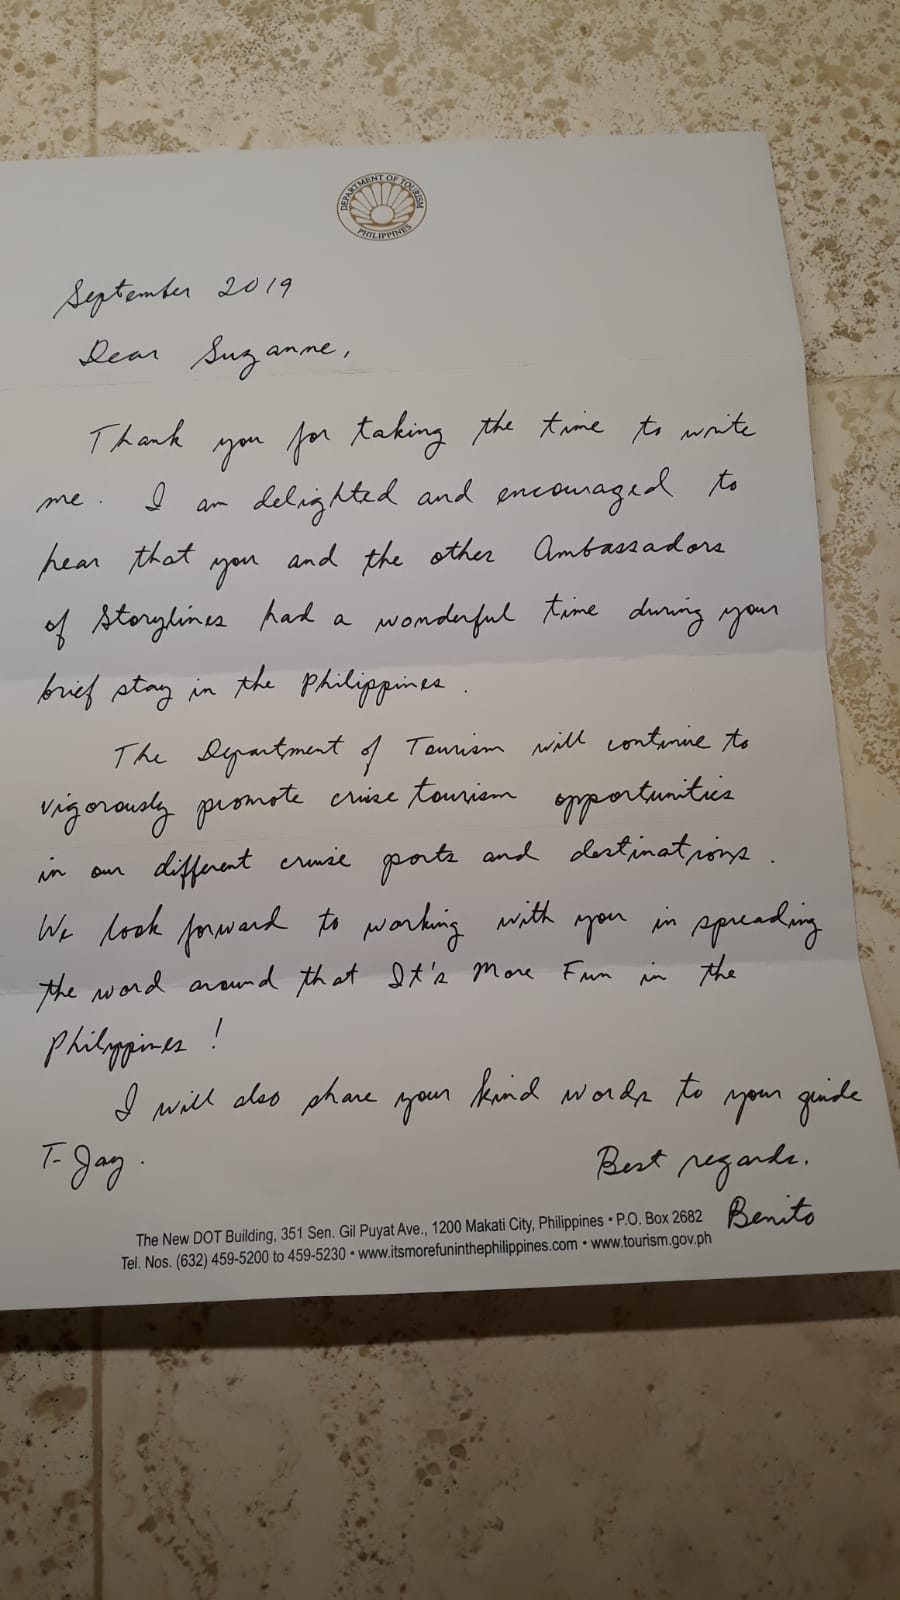 DEPARTMENT OF TOURISM
PHILIPPINES
September 2019
Dear Suzanne,
Thank you for taking the time to write
me. I am delighted and encouraged to
hear that you and the other Ambassadors
of Storylines had a wonderful time during your
brief stay in the Philippines.
The Department of Tourism will continue to
vigorously promote cruise tourism opportunities
in our different cruise ports and destinations.
We look forward to working with you in spreading
the word around that It's More Fun in the
Philippines!
I will also share your kind words to your guide
T-Jay.
Best regards,
Benito
The New DOT Building, 351 Sen. Gil Puyat Ave., 1200 Makati City, Philippines • P.O. Box 2682
Tel. Nos. (632) 459-5200 to 459-5230 • www.itsmorefuninthephilippines.com • www.tourism.gov.ph